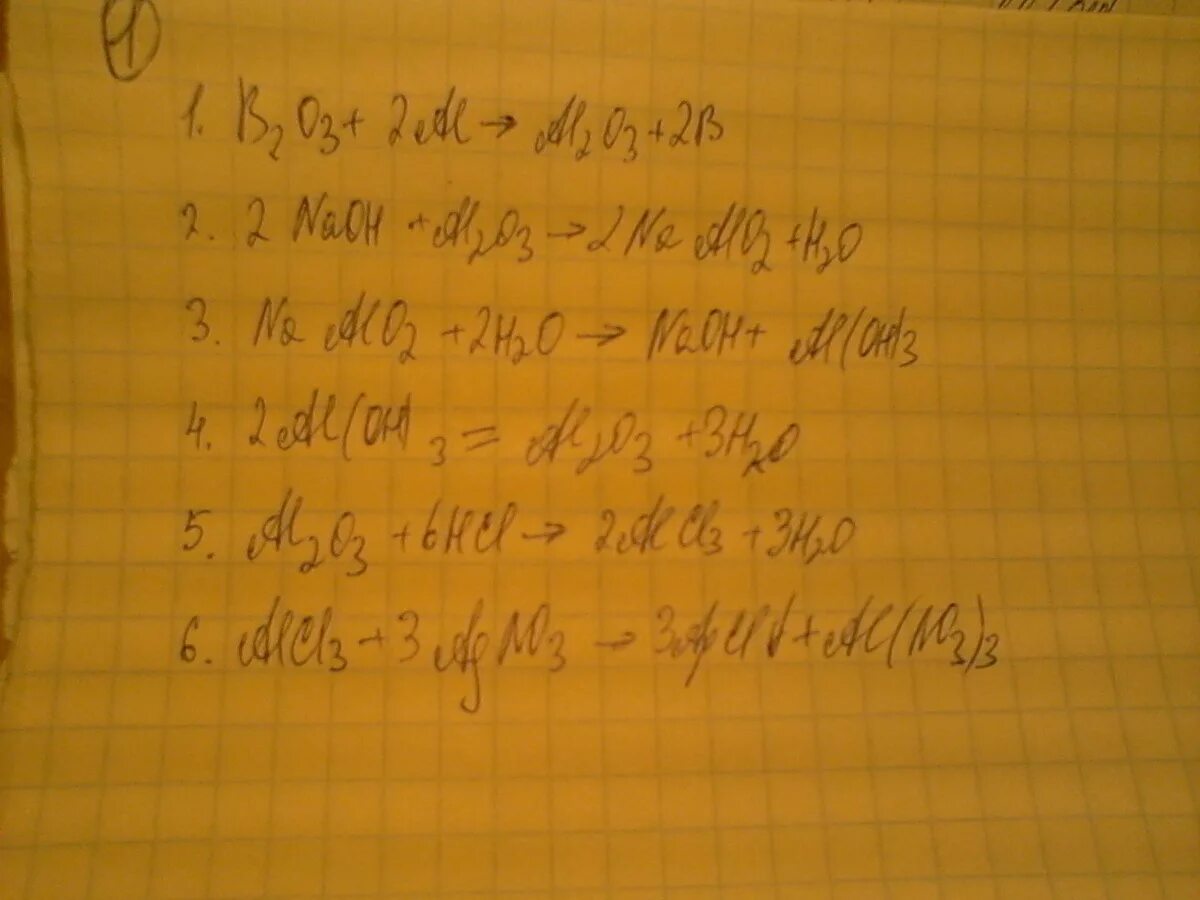 1
1. B₂O₃ + 2Al → Al₂O₃ + 2B
2. 2 NaOH + Al₂O₃ → 2 Na AlO₂ + H₂O
3. Na AlO₂ + 2H₂O → NaOH + Al(OH)₃
4. 2Al(OH)₃ = Al₂O₃ + 3H₂O
5. Al₂O₃ + 6HCl → 2AlCl₃ + 3H₂O
6. AlCl₃ + 3 AgNO₃ → 3AgCl↓ + Al(NO₃)₃